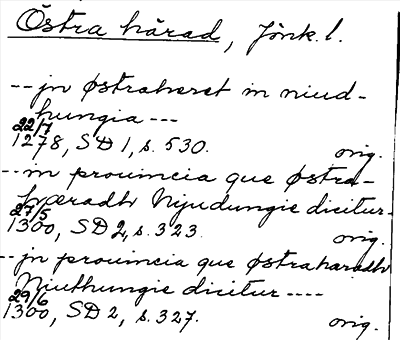 Östra härad, Jönk. l.
-- jn østrahæret in niud-
hungia ---
22/7
1278, SD 1, s. 530. orig.
-- in prouincia que østra-
hæradh Nijudungie dicitur.
27/5
1300, SD 2, s. 323. orig.
-- jn prouincia que østraharadh
Niuthungie dicitur ----
29/6
1300, SD 2, s. 327. orig.